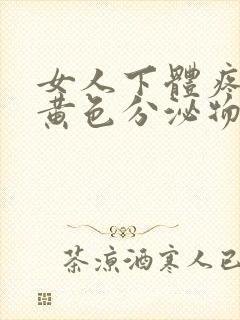 女人下體疼
黃色分泌物
茶涼酒寒人已